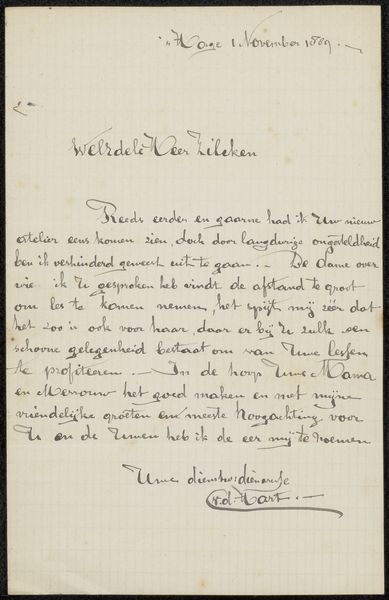 's Hage 1 November 1889. —
WelEdele Heer Zilcken
Reeds eerder en gaarne had ik Uw nieuw
atelier eens komen zien, doch door langdurige ongesteldheid
ben ik verhinderd geweest uit te gaan. — De dame over
wie ik U gesproken heb vindt de afstand te groot
om les te komen nemen, het spijt mij zéér dat
het zoo is ook voor haar, daar er bij U zulk een
schoone gelegenheid bestaat om van Uwe lessen
te profiteeren. — In de hoop Uwe Mama
en Mevrouw het goed maken en met mijne
vriendelijke groeten en meeste hoogachting voor
U en de Uwen heb ik de eer mij te noemen
Uwe dienstw: dienaresse
v. d. Hart. —